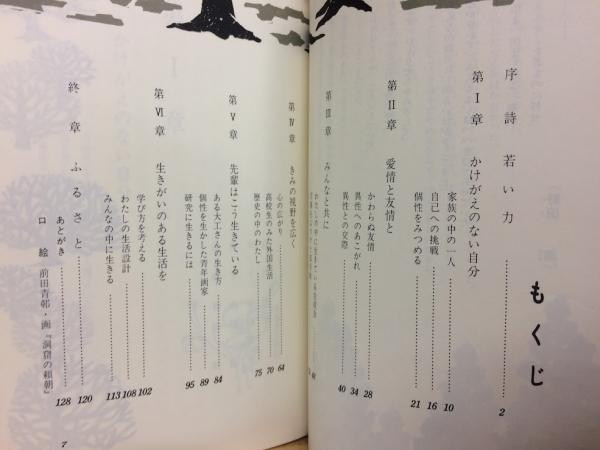 もくじ
序詩 若い力 2
第Ⅰ章 かけがえのない自分
家族の中の一人 10
自己への挑戦 16
個性をみつめる 21
第Ⅱ章 愛情と友情と
かわらぬ友情 28
異性へのあこがれ 34
異性との交際 40
第Ⅲ章 みんなと共に
第Ⅳ章 きみの視野を広く
心の広がり 64
高校生のみた外国生活 70
歴史の中のわたし 75
第Ⅴ章 先輩はこう生きている
ある大工さんの生き方 84
個性を生かした青年画家 89
研究に生きるには 95
第Ⅵ章 生きがいのある生活を
学び方を考える 102
わたしの生活設計 108
みんなの中に生きる 113
終章 ふるさと 120
あとがき 128
口絵 前田青邨・画『洞窟の頼朝』
7